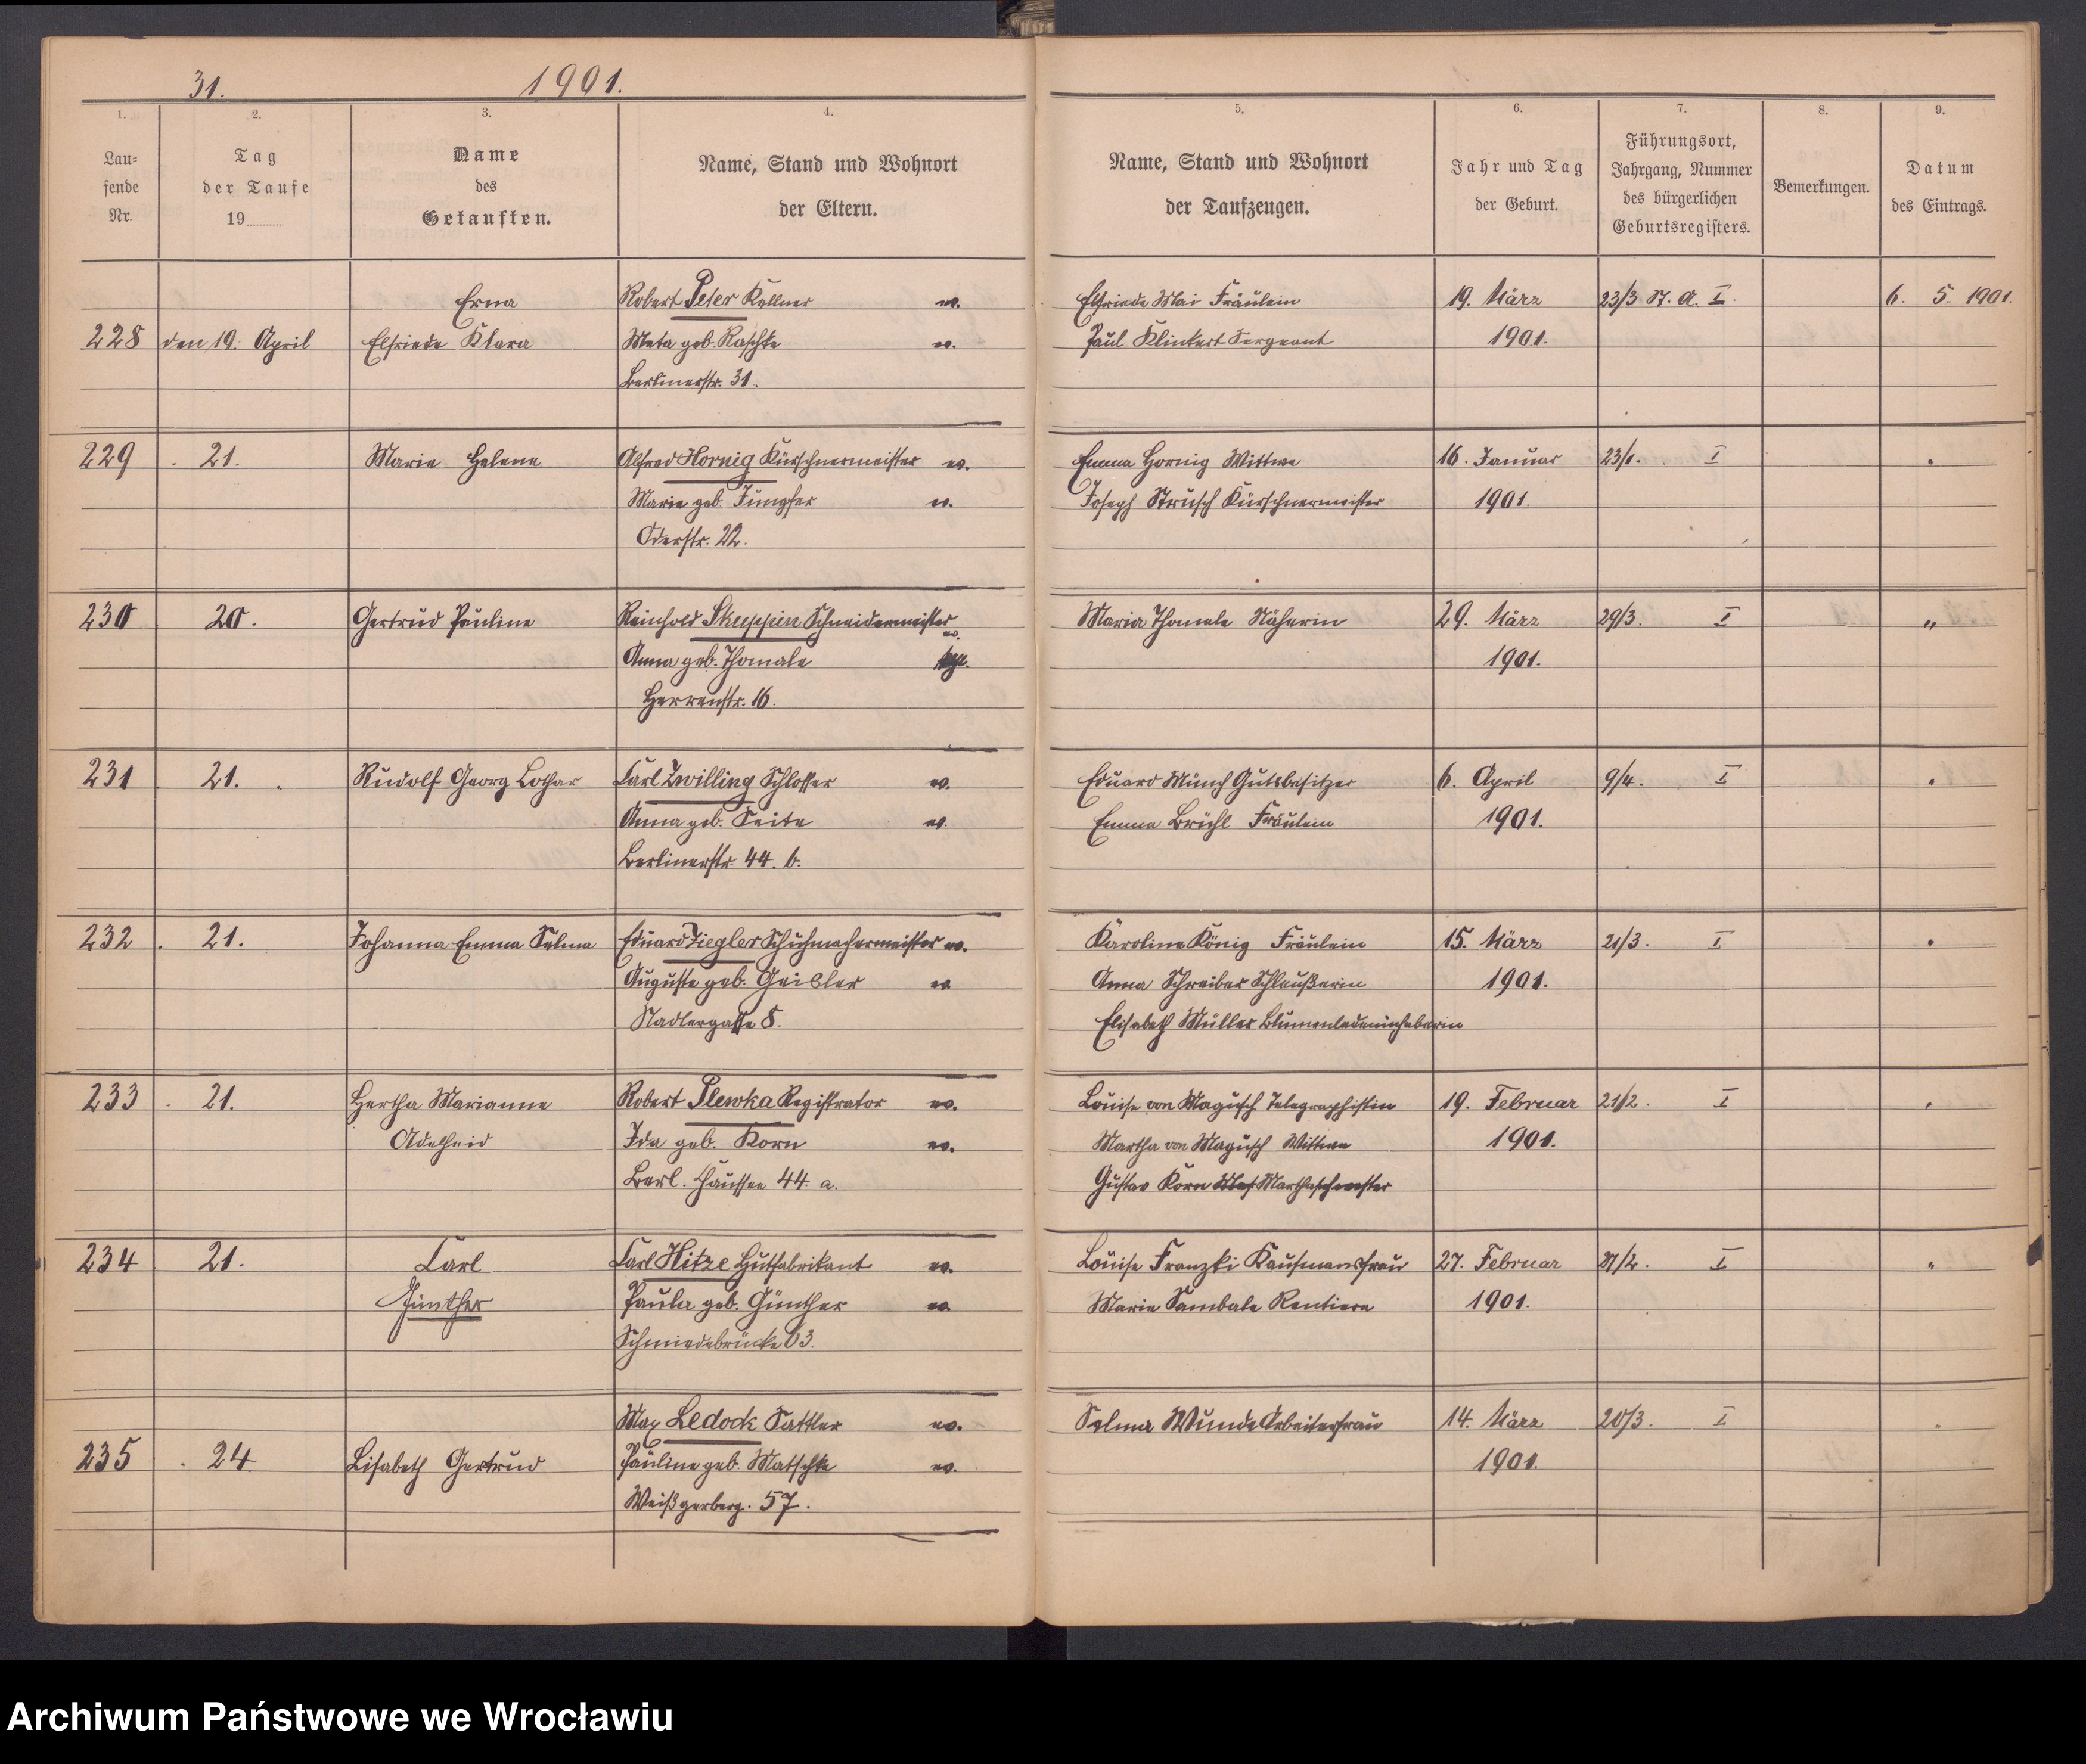 31. 1901.
1. 2. 3. 4. 5. 6. 7. 8. 9.
Lau=
fende
Nr.
Tag
der Taufe
19
Name
des
Getauften.
Name, Stand und Wohnort
der Eltern.
Name, Stand und Wohnort
der Taufzeugen.
Jahr und Tag
der Geburt.
Führungsort,
Jahrgang, Nummer
des bürgerlichen
Geburtsregisters.
Bemerkungen.
Datum
des Eintrags.
Erna Robert Peter Kellner ev. Elfriede Mai Fräulein 19. März 23/3 St. A. I. 6. 5. 1901.
228 den 19. April Elfriede Klara Meta geb. Raschke ev. Paul Klinkert Sergeant 1901.
Berlinerstr. 31.
229 . 21. Marie Helene Alfred Hornig Kürschnermeister ev. Emma Hornig Wittwe 16. Januar 23/1. I "
Marie geb. Jungfer ev. Joseph Strusch Kürschnermeister 1901.
Oderstr. 22.
230 20. Gertrud Pauline Reinhold Skuppin Schneidermeister ev. Maria Thomale Näherin 29. März 29/3. I "
Anna geb. Thomale 1901.
Herrenstr. 16.
231 . 21. Rudolf Georg Lothar Carl Zwilling Schlosser ev. Eduard Münch Gutsbesitzer 6. April 9/4. I "
Anna geb. Seite ev. Emma Brühl Fräulein 1901.
Berlinerstr. 44. b.
232 . 21. Johanna Emma Selma Eduard Ziegler Schuhmachermeister ev. Karoline König Fräulein 15. März 21/3. I "
Auguste geb. Geisler ev. Anna Schreiber Schleußerin 1901.
Nadlergasse 8. Elisabeth Müller Blumenladeninhaberin
233 . 21. Hertha Marianne Robert Plewka Registrator ev. Louise von Magusch Telegraphistin 19. Februar 21/2. I "
Adelheid Ida geb. Korn ev. Martha von Magusch Wittwe 1901.
Berl. Chaussee 44. a. Gustav Korn
234 21. Carl Carl Hitze Hutfabrikant ev. Louise Franzki Kaufmannsfrau 27. Februar I "
Günther Paula geb. Günther ev. Marie Sambale Rentiere 1901.
Schmiedebrücke 63.
Max Ledock Sattler ev. Selma Wunde Arbeiterfrau 14. März 20/3. I "
235 . 24. Lisabeth Gertrud Pauline geb. Matschke ev. 1901.
Weißgerberg. 57.
Archiwum Państwowe we Wrocławiu